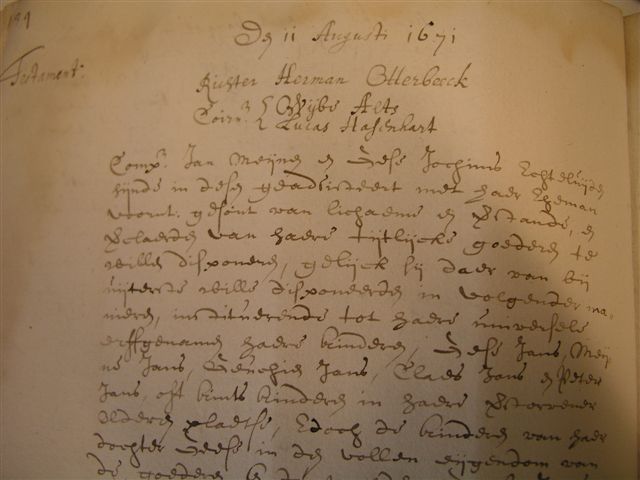 184
Den 11 Augusti 1671
Testament.
Richter Herman Otterbeeck
Coirn. Wijbe Alts
Lucas Hasenhart
Comp. Jan Meijne en Gese Jochims Echteluijden
sijnde in desen geadsisteert met haer Eheman
voornt. gesont van lichaeme en verstande, en
verclaerden van haere tijtlijcke goederen te
willen disponeren, gelijck sij daer van bij
uijterste wille disponeerden in volgender ma-
nieren, instituerende tot haere universele
erffgenamen haere kinderen, Gese Jans, Meij-
ne Jans, Jans, Claes Jans en Peter
Jans, oft kints kinderen in haere verstorvener
olderen plaetse, Edoch de kinderen van haer
dochter Gese in den vollen eijgendom van
de goederen